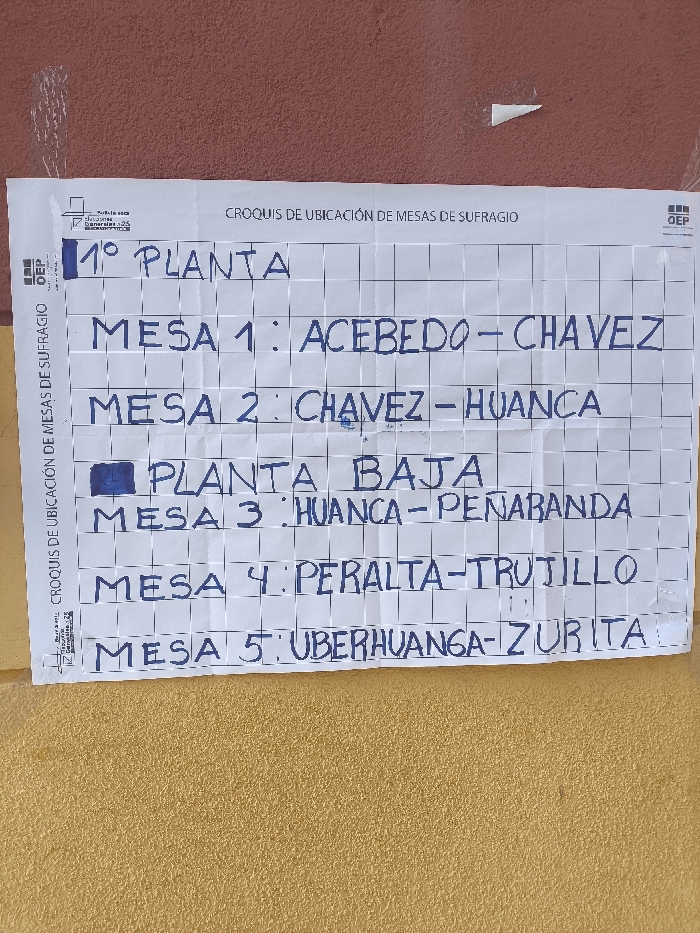 CROQUIS DE UBICACIÓN DE MESAS DE SUFRAGIO
OEP
Elecciones
Generales
OEP
CROQUIS DE UBICACIÓN DE MESAS DE SUFRAGIO
1º PLANTA
MESA 1: ACEBEDO-CHAVEZ
MESA 2: CHAVEZ-HUANCA
PLANTA BAJA
MESA 3: HUANCA-PEÑARANDA
MESA 4: PERALTA-TRUJILLO
MESA 5: UBERHUANGA-ZURITA